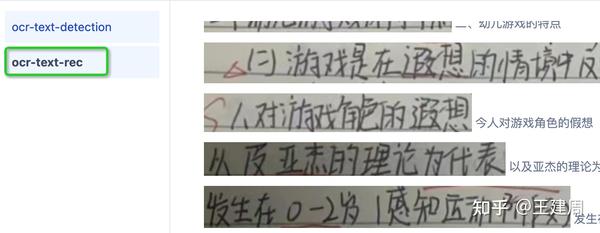 ocr-text-detection
ocr-text-rec
二、幼儿游戏的特点
(二)游戏是在遐想的情境中反
1、对游戏角色的遐想
今人对游戏角色的假想
以皮亚杰的理论为代表
以及亚杰的理论为
发生在0-2岁(感知运动阶段)
发生在
知乎 @王建周